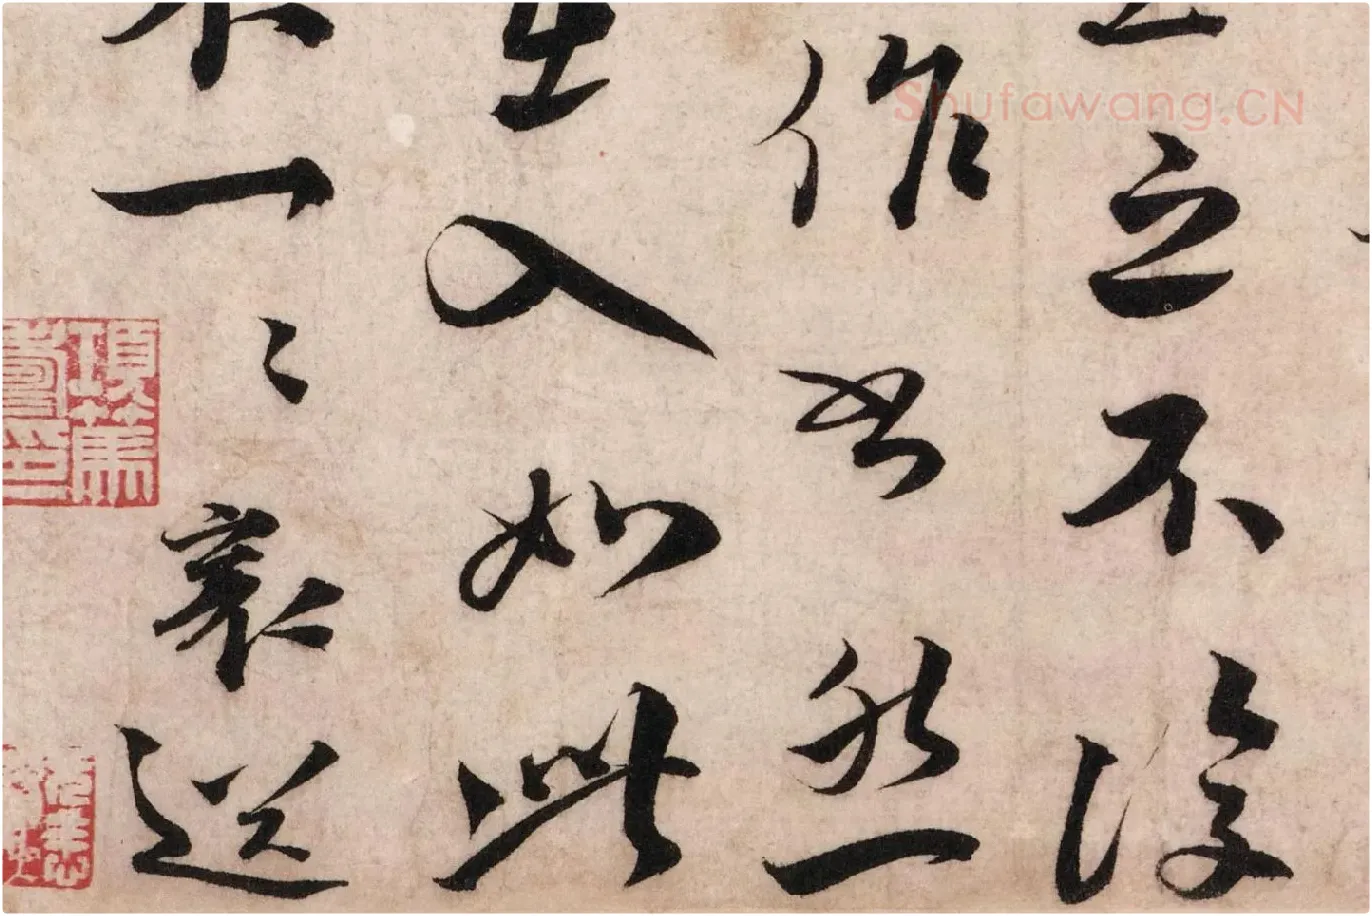 之不復
作書然一
入如此
不一々襄送
項篤
壽印
Shufawang.CN